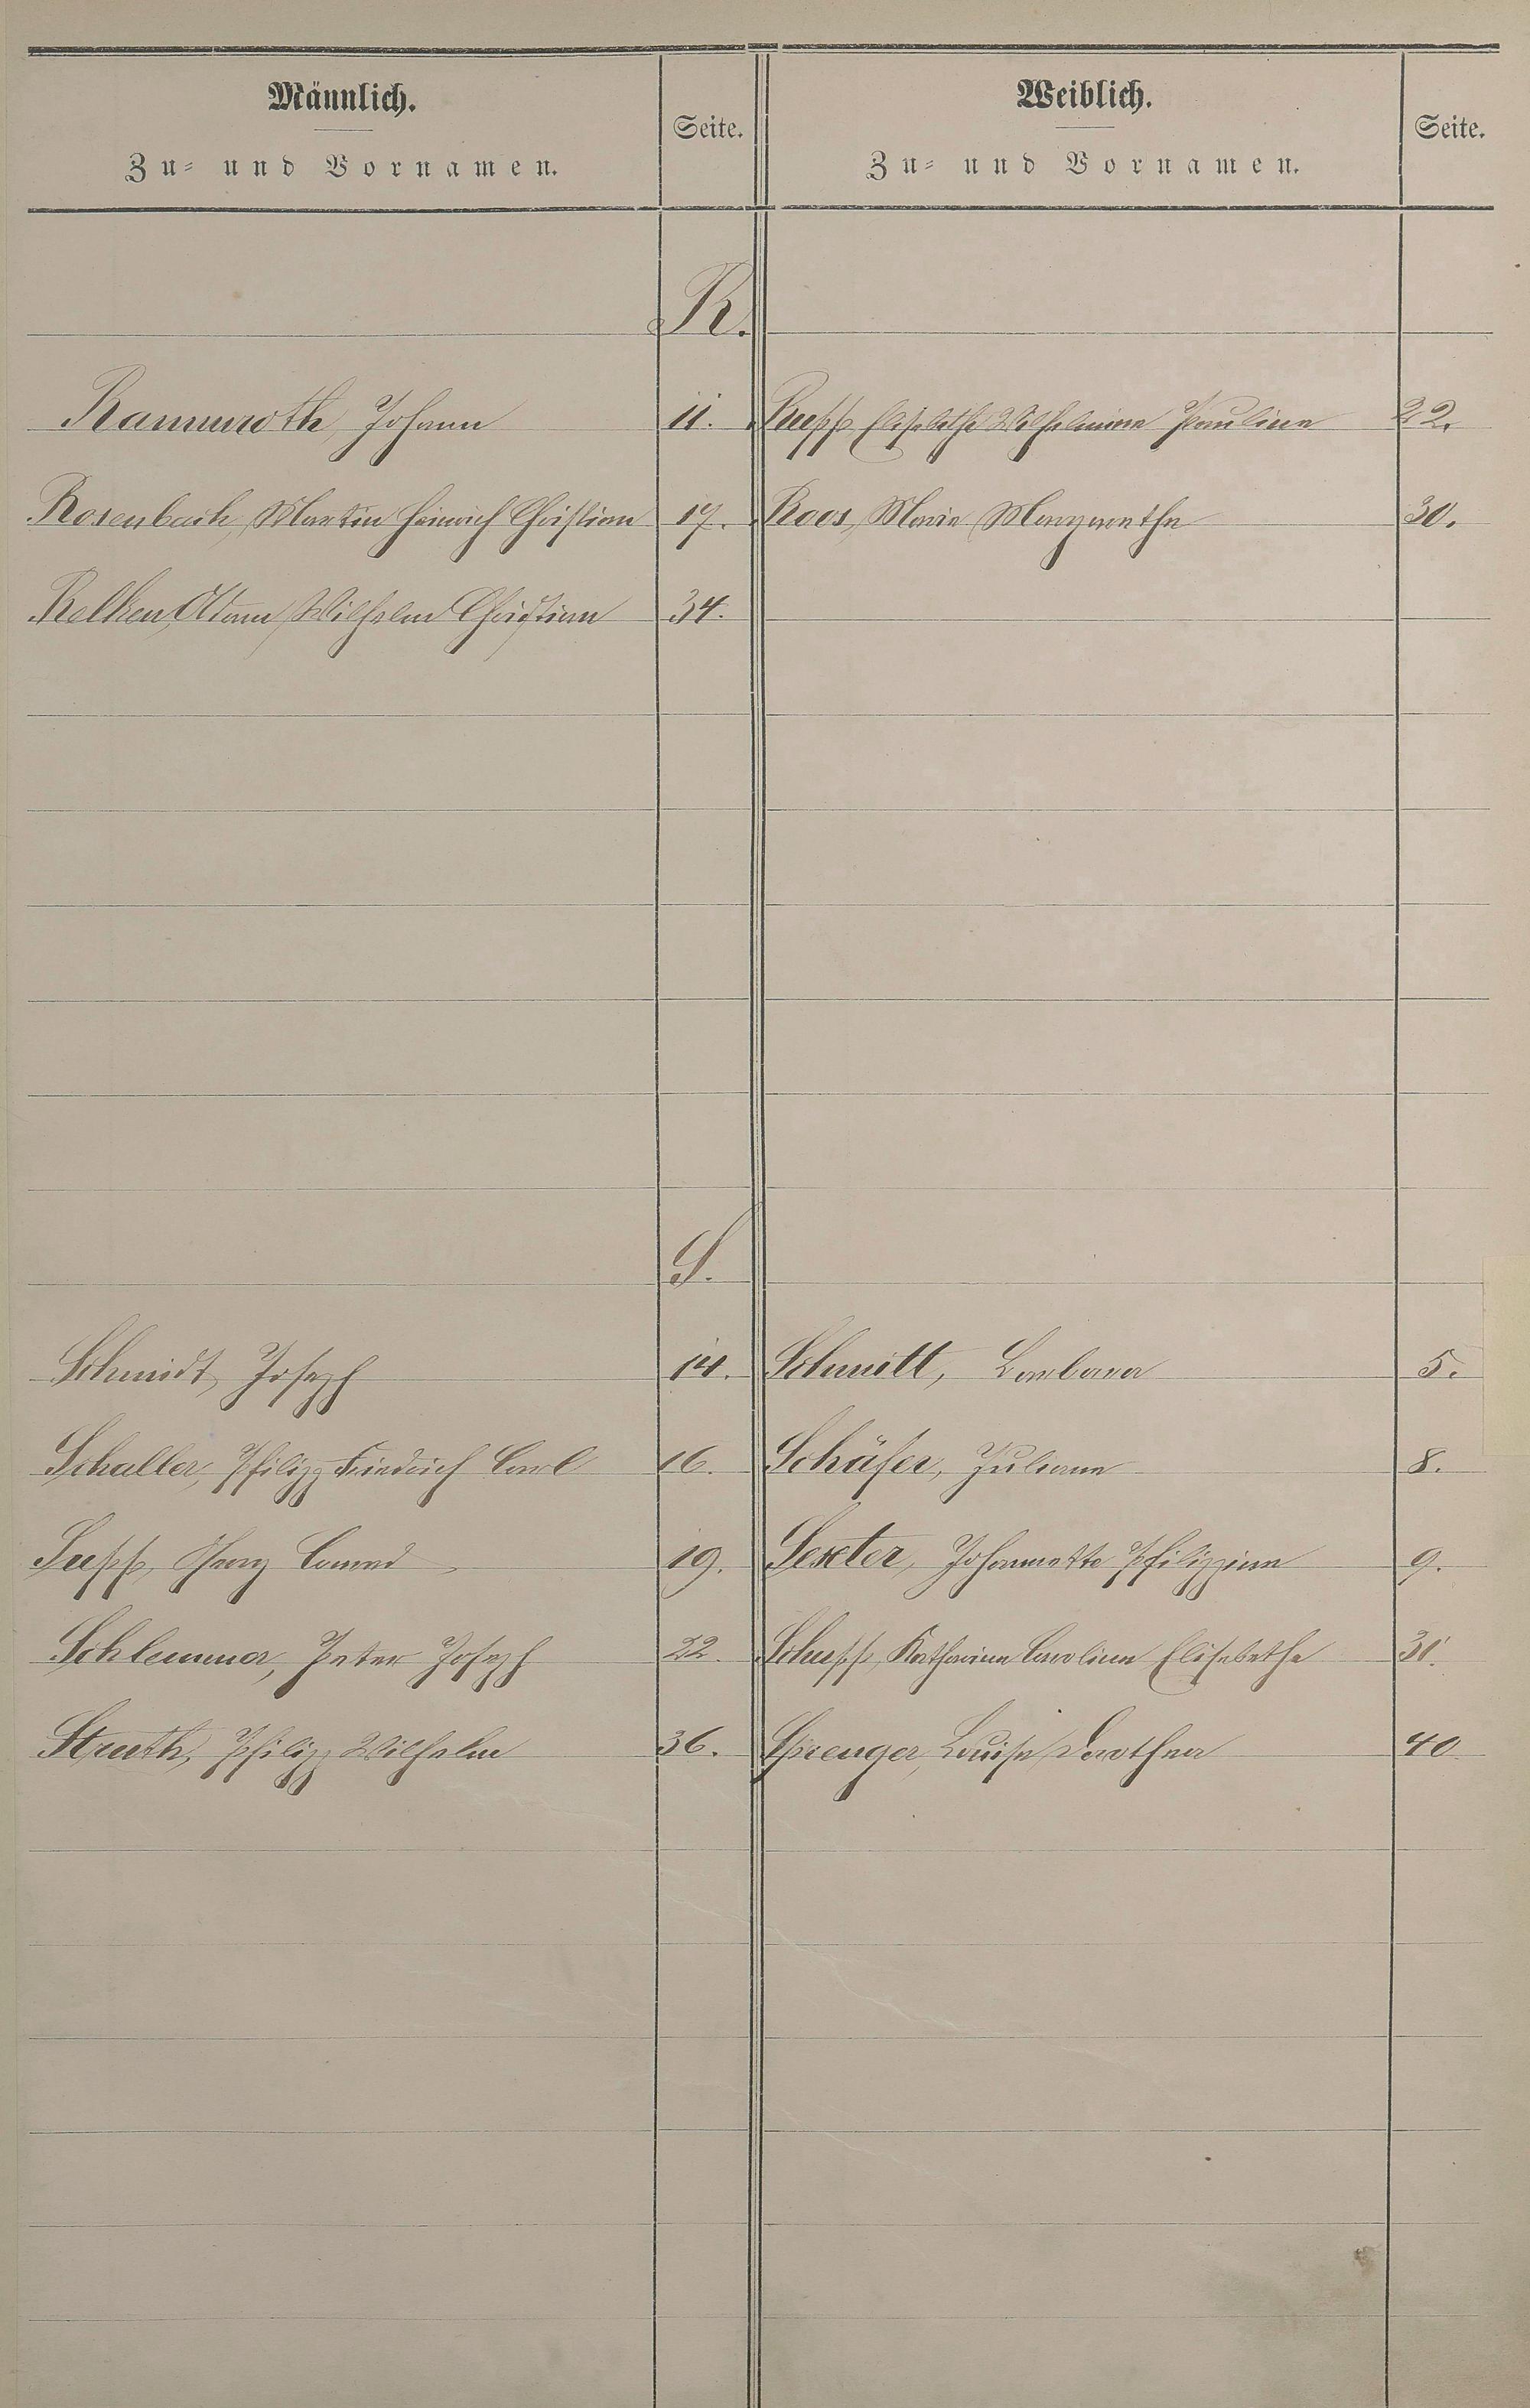 Männlich.
Zu- und Vornamen.
Seite.
Weiblich.
Zu- und Vornamen.
Seite.
R.
Rammroth, Johann 11. Rupp, Elisabethe Wilhelmine Pauline 22.
Rosenbach, Martin Heinrich Christian 17. Roos, Marie Margarethe 30.
Wilhelm Christian 34.
S.
Schmidt, Joseph 14. Schmitt, Barbara 5.
Schaller, Philipp Friedrich Carl 16. Schäfer, Juliane 8.
Supp, Georg Conrad 19. Sexter, Johannette Philippine 9.
Schlemmer, Peter Joseph 22. Schupp, Katharine Caroline Elisabethe 31.
Struth, Philipp Wilhelm 36. Sprenger, Louise Dorothea 40